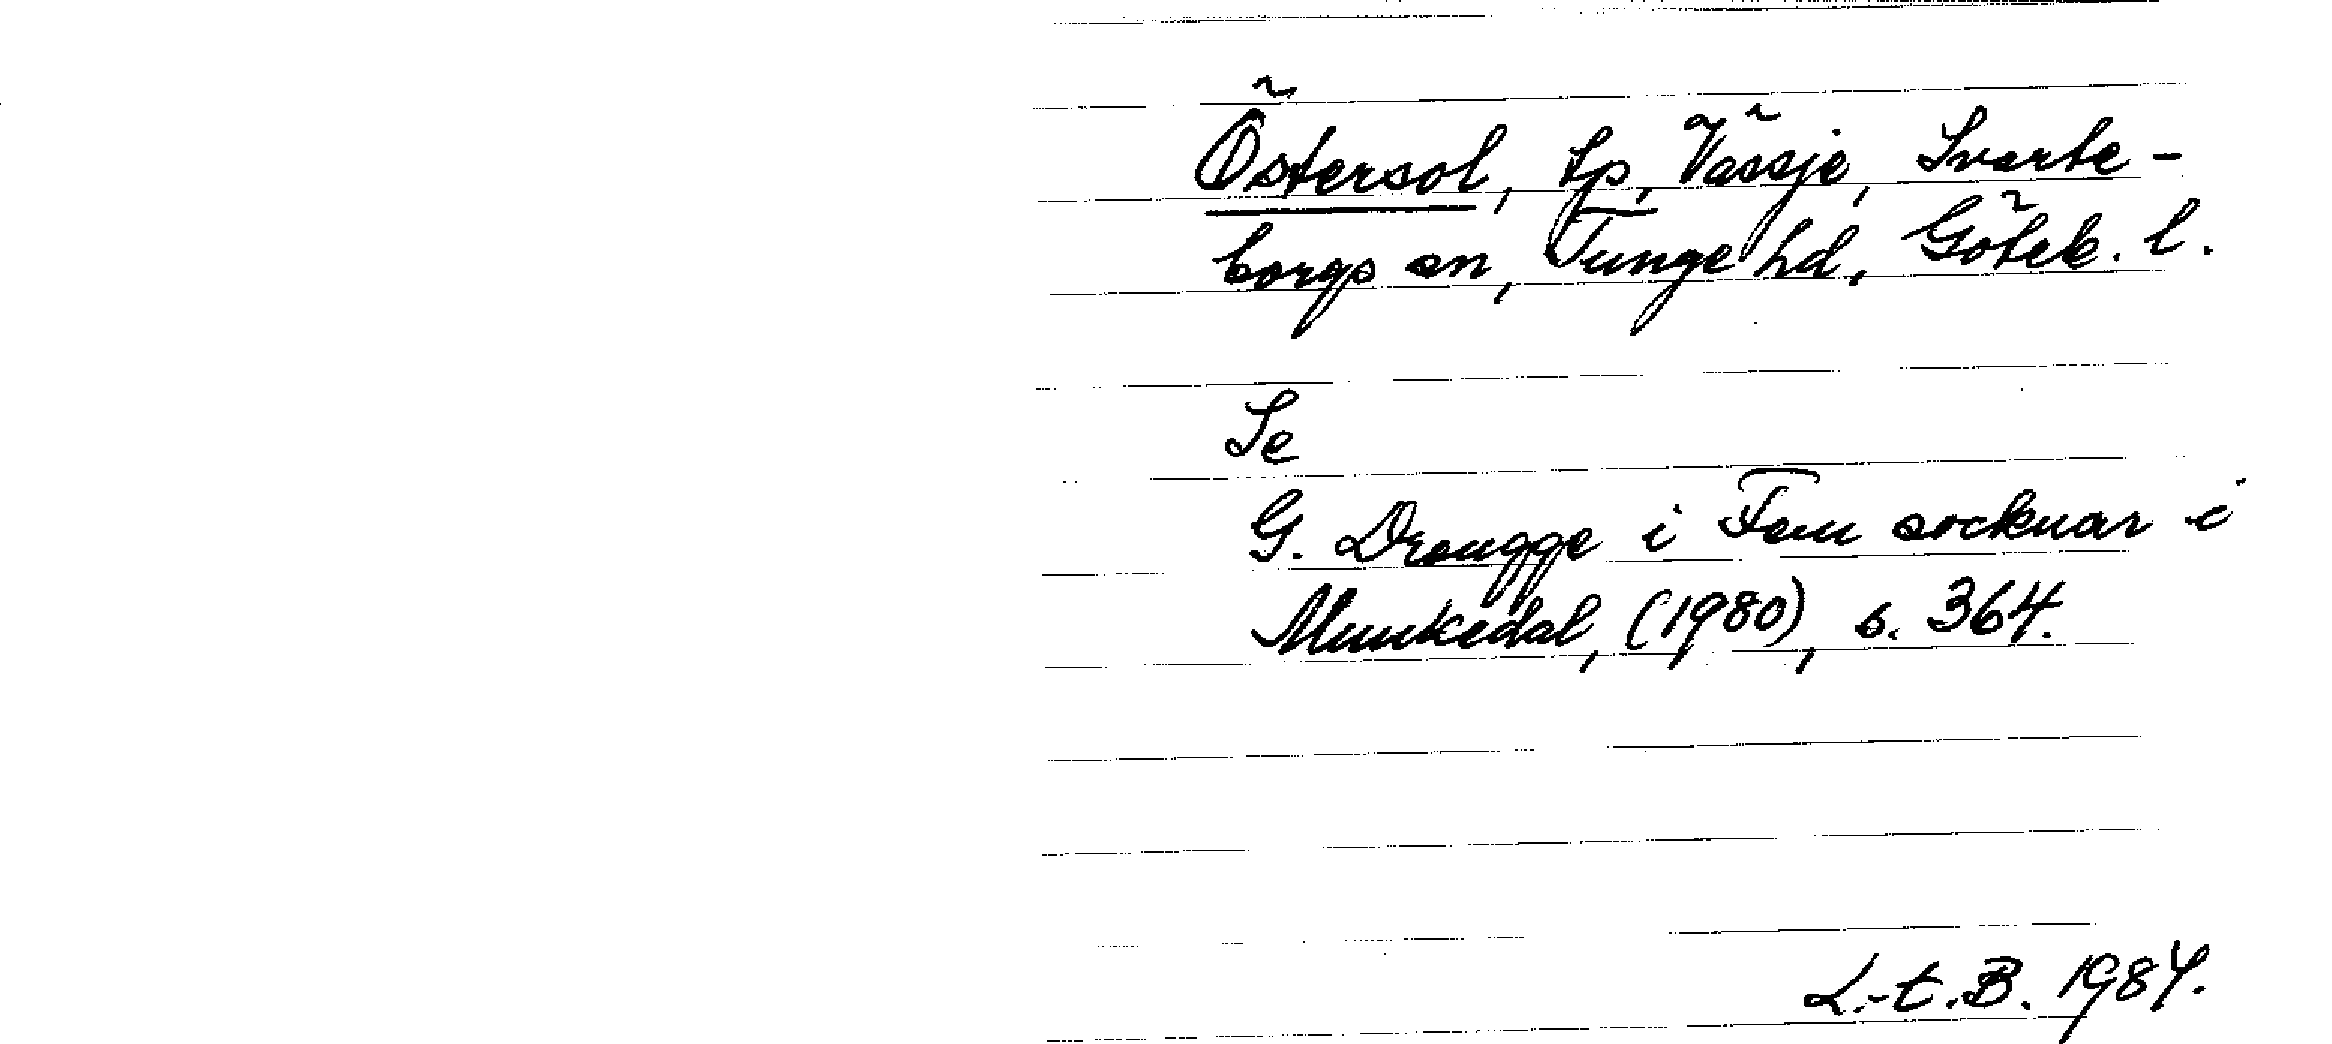 Östersol, tp, Vässje, Svarte-
borgs sn, Tunge hd, Göteb. l.
Se
G. Drougge i Fem socknar i
Munkedal, (1980), s. 364.
L.-t.B. 1984.